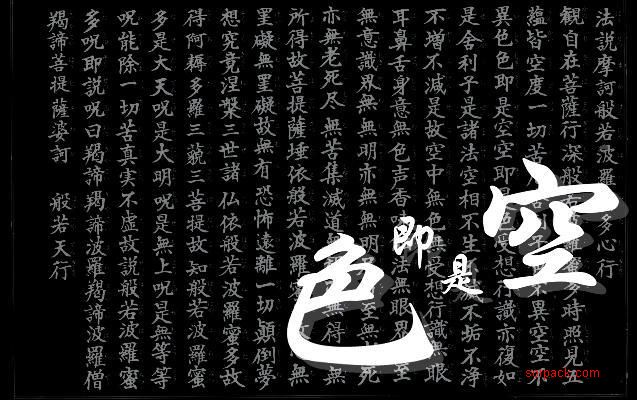 法説摩訶般若波羅多心行
観自在菩薩行深般多時照見五
蘊皆空度一切苦異空空不
異色色即是空空即是想行識亦復如
是舍利子是諸法空相不生不垢不浄
不增不減是故空中無色無受想行識無眼
耳鼻舌身意無色声香法無眼界至
無意識界無無明亦無無明至無死
亦無老死尽無苦集滅道無得無
所得故菩提薩埵依般若波羅故無
罣礙無罣礙故無有恐怖遠離一切顛倒夢
想究竟涅槃三世諸仏依般若波羅蜜多故
得阿耨多羅三藐三菩提故知般若波羅蜜
多是大天呪是大明呪是無上呪是無等等
呪能除一切苦真実不虚故説般若波羅蜜
多呪即説呪曰羯諦羯諦波羅羯諦波羅僧
羯諦菩提薩婆訶 般若天行
空
是
即
色